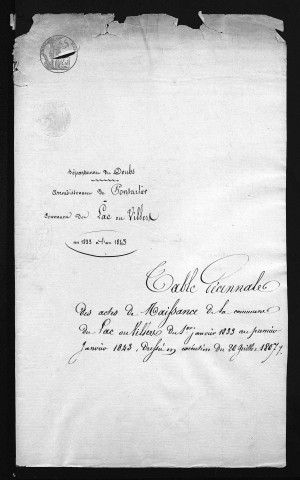 Département du Doubs
Arrondissement de Pontarlier
Commune du Lac ou Villers
an 1833 à l'an 1843
Table Décennale
des actes de Naissance de la commune
du Lac ou Villers du 1er janvier 1833 au premier
Janvier 1843, Dressée en exécution du 20 Juillet 1807.